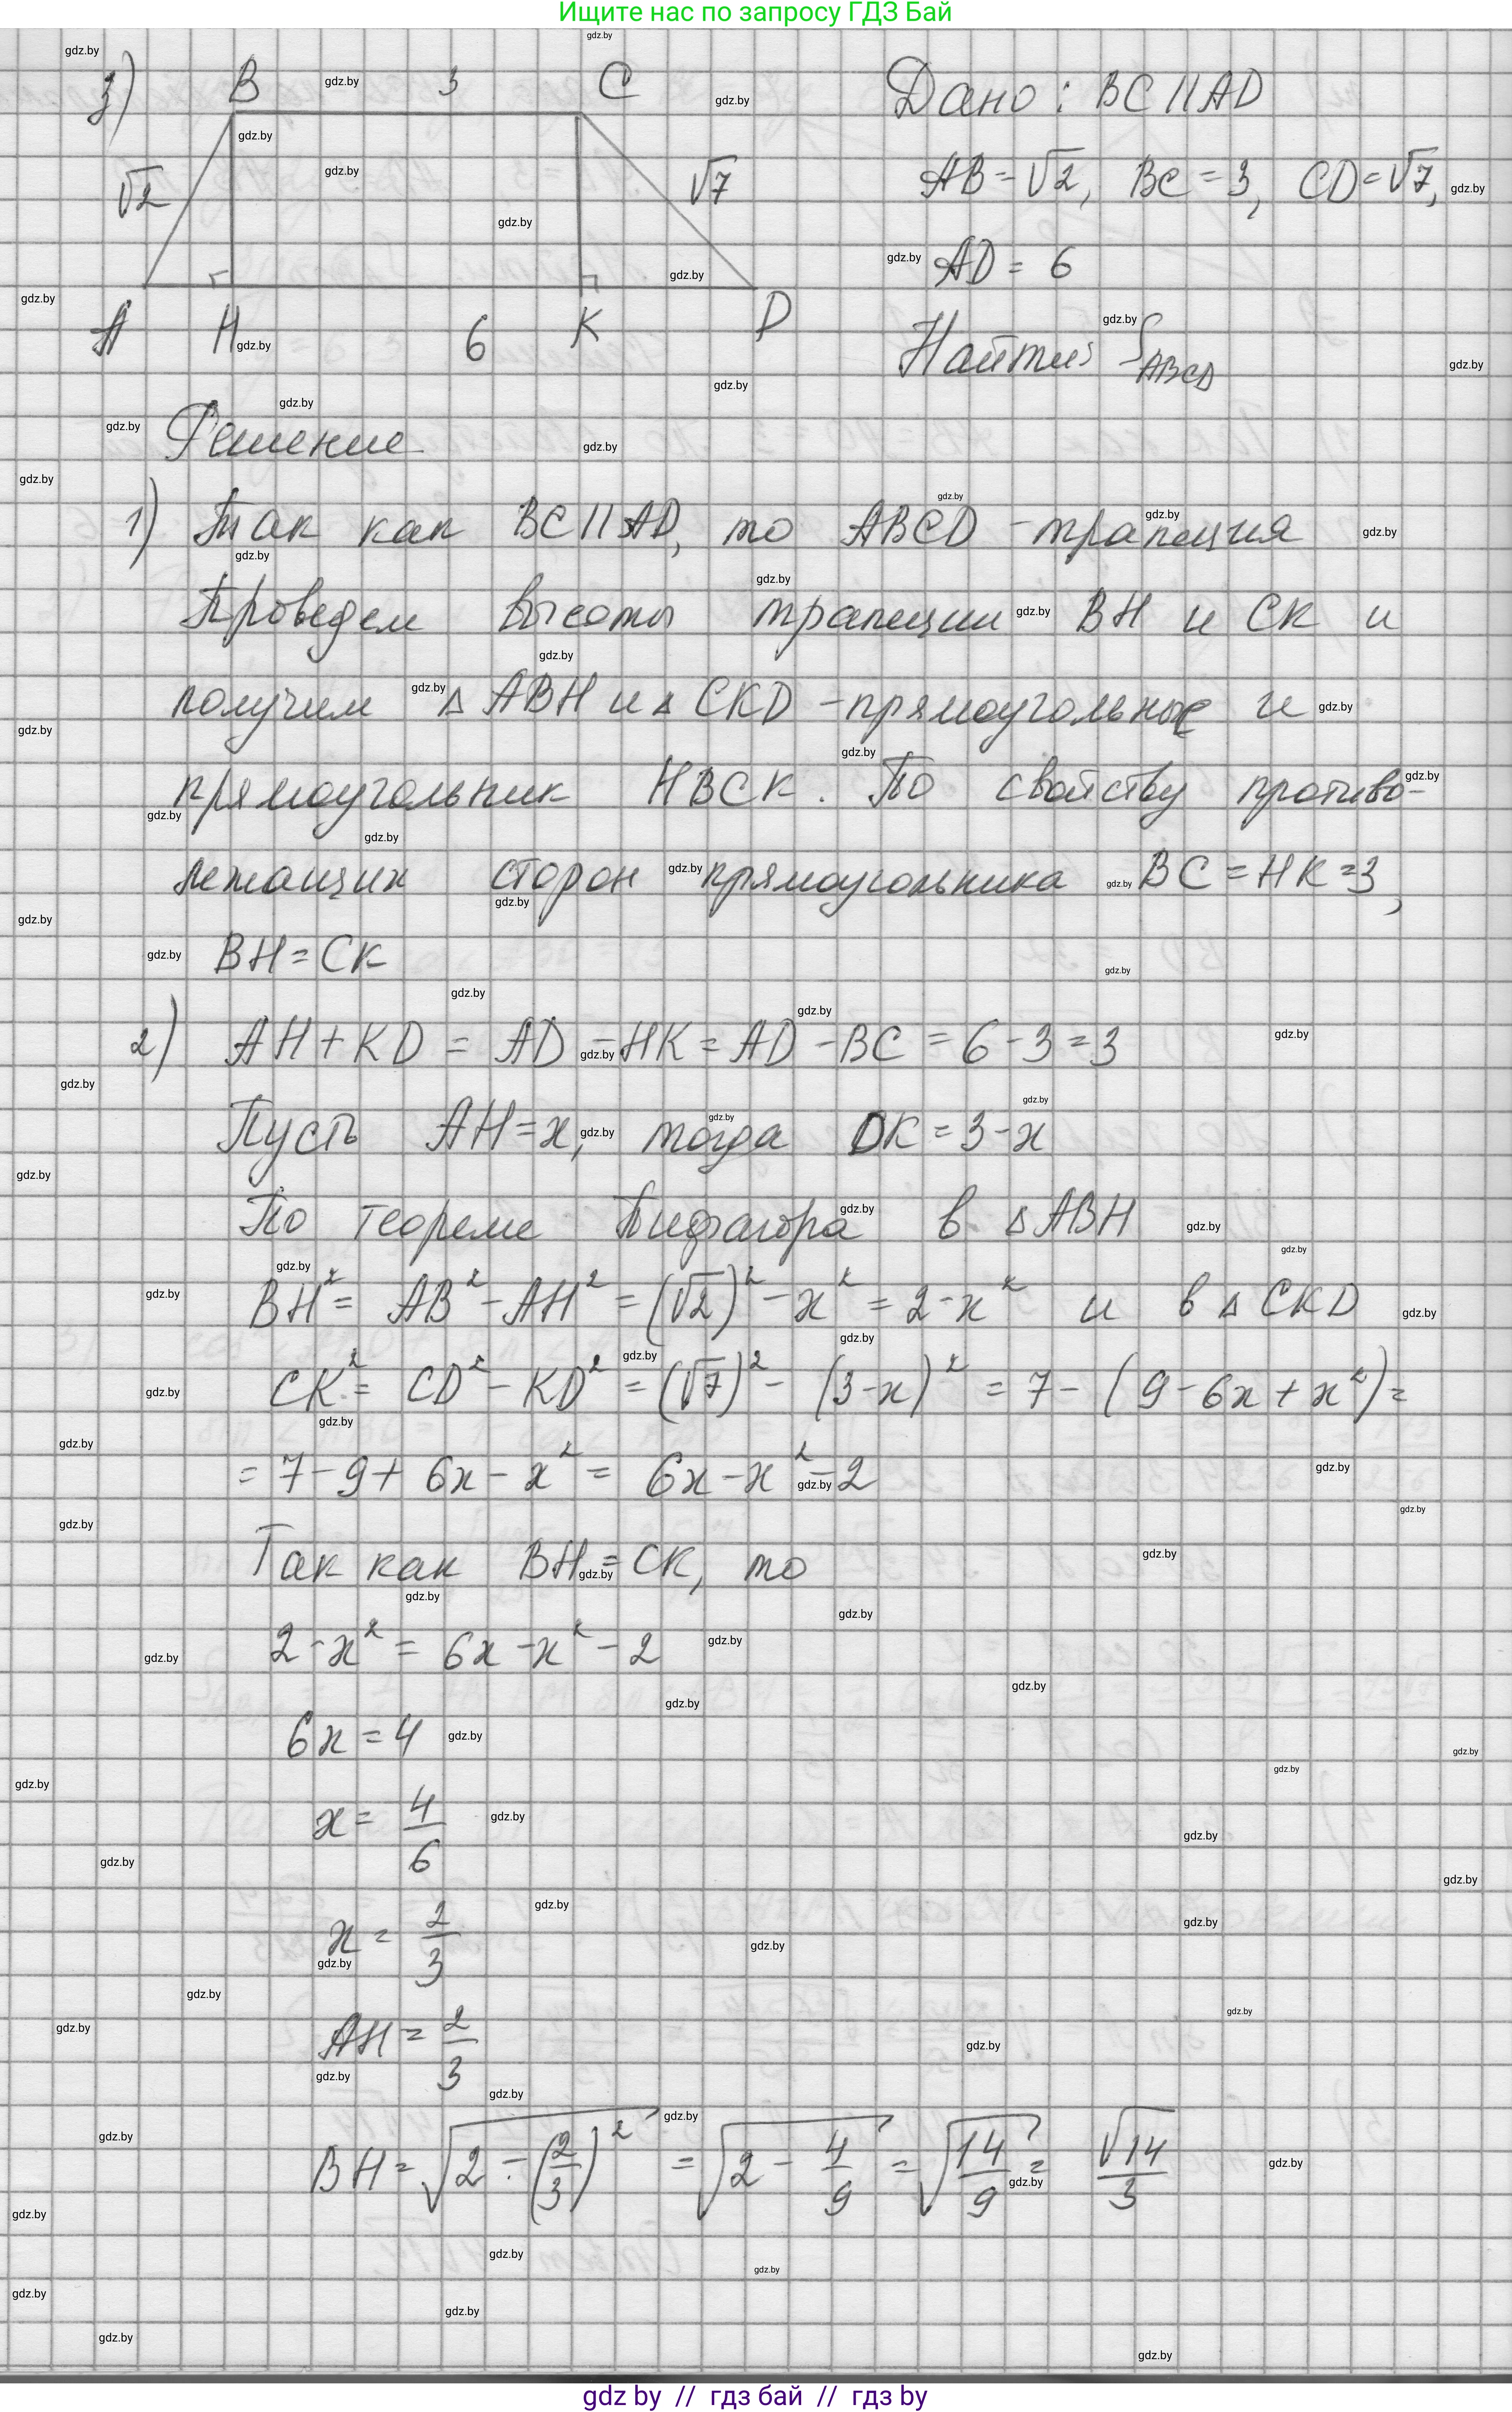 Ищите нас по запросу ГДЗ Бай
3) B 3 C
√2 √7
A H 6 K D
Дано: BC||AD
AB=√2, BC=3, CD=√7,
AD = 6
Найти: S_ABCD
Решение
1) Так как BC||AD, то ABCD - трапеция
Проведем высоты трапеции BH и CK и
получим △ABH и △CKD - прямоугольные и
прямоугольник HBCK. По свойству противо-
лежащих сторон прямоугольника BC=HK=3,
BH=CK
2) AH+KD = AD-HK=AD-BC=6-3=3
Пусть AH=x, тогда DK=3-x
По теореме Пифагора в △ABH
BH²= AB²-AH²=(√2)²-x²=2-x² и в △CKD
CK²= CD²-KD²=(√7)²-(3-x)²=7-(9-6x+x²)=
=7-9+6x-x²= 6x-x²-2
Так как BH=CK, то
2-x²=6x-x²-2
6x=4
x= 4/6
x= 2/3
AH= 2/3
BH=√(2-(2/3)²) =√(2-4/9) =√(14/9) = √14/3
gdz by // гдз бай // гдз by